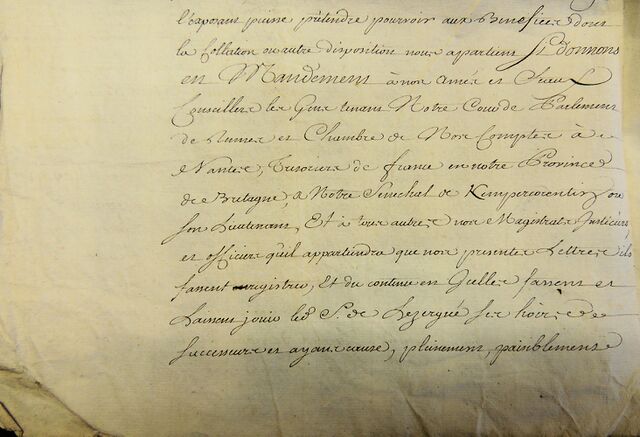 l'exposant puisse prétendre pourvoir aux Benefices dont
la Collation ou autre disposition nous appartient Sy donnons
en Mandement à nos amés et feaux
Conseillers les Gens tenans Notre Cour de Parlement
de Rennes et Chambre de Nos Comptes à
Nantes, Tresoriers de france en notre Province
de Bretagne, a Notre Senechal de Kimpercorentin ou
son Lieutenant, Et à tous autres nos Magistrats Justiciers
et officiers qu'il appartiendra que nos presentes Lettres ils
fassent registrer, Et du contenu en Icelles fassent et
Laissent jouir led. S. de Lezergué ses hoirs
successeurs et ayans cause, plainement, paisiblement